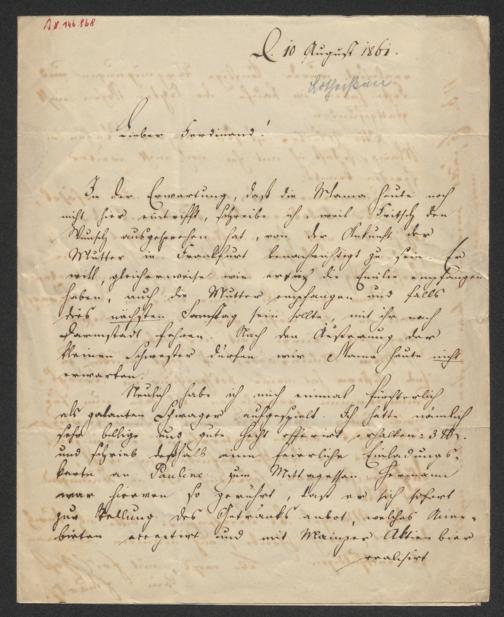 D. 10 August 1861.
Lieber Ferdinand!
In der Erwartung, daß die Mama heute noch
nicht hier eintrifft, schreibe ich, weil Fritsch den
Wunsch ausgesprochen hat, von der Ankunft der
Mutter in Frankfurt benachrichtigt zu sein. Er
will, gleicherweise wie er die Emilie empfangen
haben, auch die Mutter empfangen und falls
dies nächsten Samstag sein sollte, mit ihr nach
Darmstadt fahren. Nach der Äußerung der
kleinen Schwester dürfen wir Mama heute nicht
erwarten.
Neulich habe ich mich einmal fürchterlich
als galanten Schwager aufgespielt. Ich hatte nämlich
sehr billige und gute Hecht offerirt erhalten
und schrieb deßhalb eine feierliche Einladungs-
karte an Pauline zum Mittagessen. Hermann
war hiervon so gerührt, daß er sich sofort
zur Stellung des Getränks anbot, welches Aner-
bieten acceptirt und mit Mainzer Aktienbier
realisirt